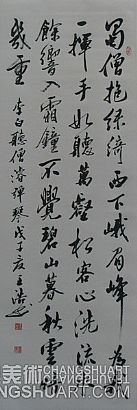 蜀僧抱綠綺西下峨眉峰為我
一揮手如聽萬壑松客心洗流水
餘響入霜鐘不覺碧山暮秋雲暗
幾重 李白聽僧濬彈琴戊子夏王
CHANGSHUART